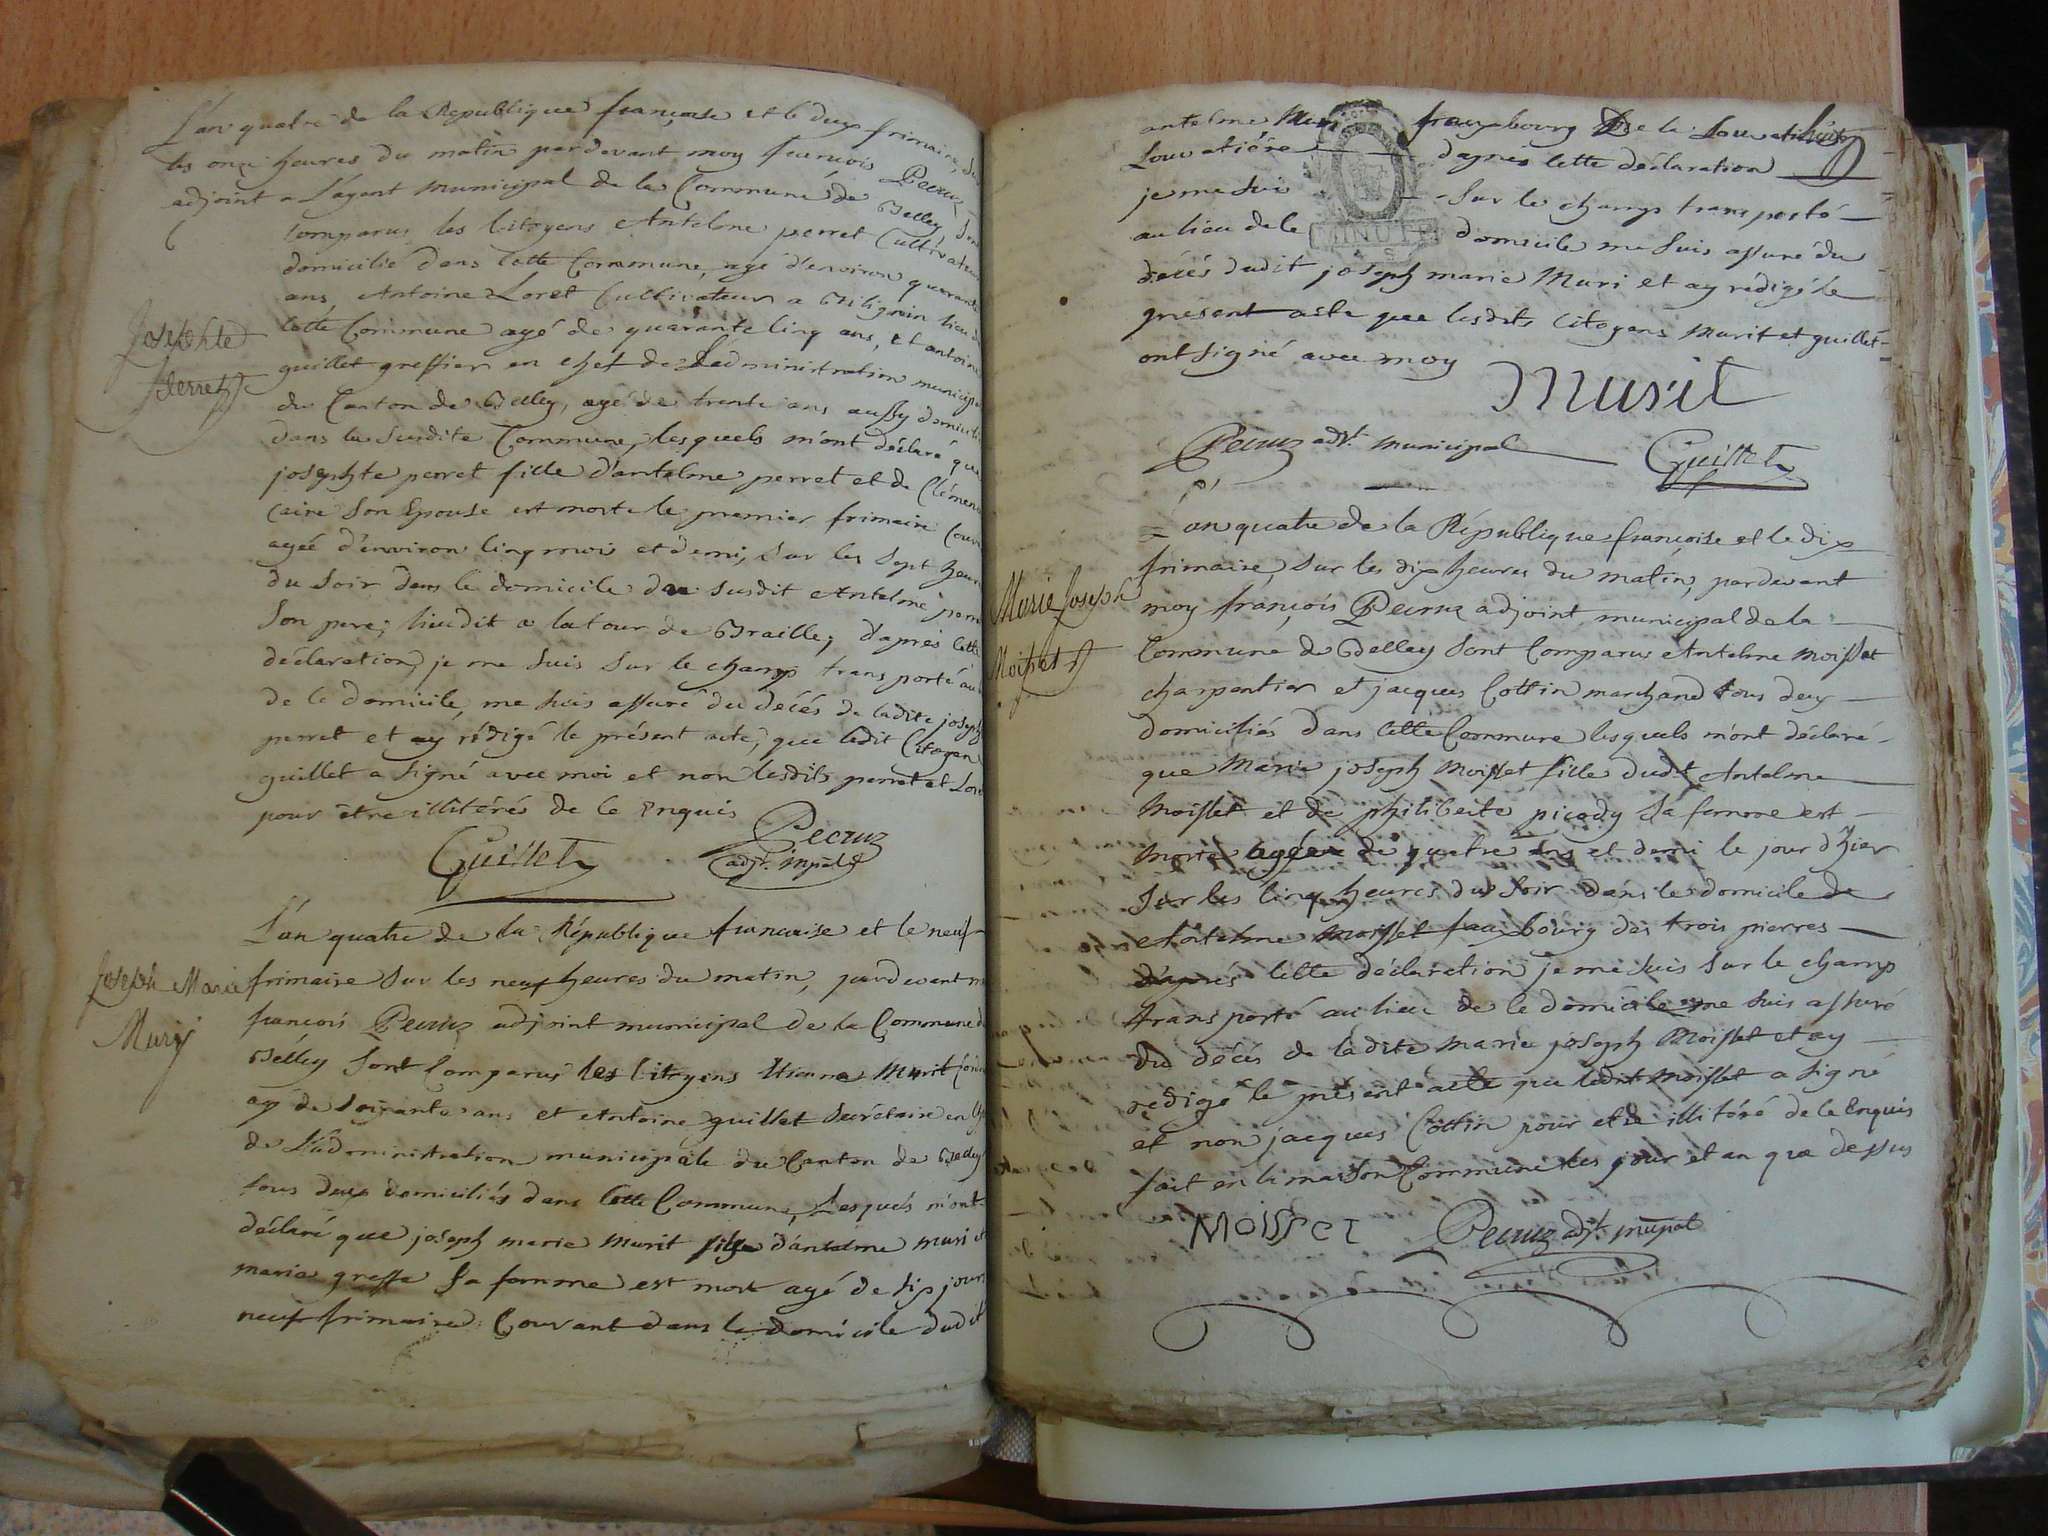 L'an quatre de la République françoise et le deux frimaire, sur
les onze heures du matin pardevant moy françois Pecruz
adjoint a L'agent municipal de la Commune de Belley, sont
Comparus les Citoyens Antelme perret Cultivateur
domicilié dans Cette Commune, agé d'environ quarante
ans, Antoine Loret Cultivateur a Billignin lieu de
Cette Commune agé de quarante Cinq ans, et antoine
guillet greffier en chef de L'administration municip
du Canton de Belley, agé de trente ans aussy domicili
dans la Susdite Commune, lesquels m'ont déclaré que
josephte perret fille d'antelme perret et de Clémen
Caire Son Epouse est morte le premier frimaire Cour
agée d'environ Cinq mois et demi, sur les Sept heur
du Soir dans le domicile du susdit Antelme perre
Son pere, lieudit a latour de Braille, d'aprés Cette
déclaration, je me suis sur le champ transporté au
de Ce domicile, me suis assuré du décés de ladite joseph
perret et ay rédigé le présent acte, que ledit Citoyen
guillet a Signé avec moi et non lesdits perret et Lor
pour être illitérés de Ce Enquis
Josephte
Perret
Guillet
Pecruz
adjt. mpal
L'an quatre de la République francoise et le neuf
frimaire sur les neuf heures du matin, pardevant m
françois Pecruz adjoint municipal de la Commune d
Belley Sont Comparus les Citoyens Etienne Murit
agé de Soixante ans et Antoine guillet Secrétaire en
de L'administration municipale du Canton de Belley
tous deux domiciliés dans Cette Commune, Lesquels m'ont
déclaré que joseph marie Murit fils d'antelme muri et
marie greffe Sa femme est mort agé de six jours
neuf frimaire Courant dans le domicile dudit
Joseph Marie
Muri
antelme Muri fauxbourg de la Louvatière
Louvatiére d'aprés Cette déclaration
je me suis sur le champ transporté
au lieu de Ce domicile me suis assuré du
décés dudit joseph marie Muri et ay rédigé le
present acte que lesdits Citoyens Murit et guillet
ont Signé avec moy
MINUTE
Murit
Pecruz adjt. municipal
Guillet
L'an quatre de la République françoise et le dix
frimaire, sur les dix heures du matin, pardevant
moy françois Pecruz adjoint municipal de la
Commune de Belley Sont Comparus Antelme Moisset
charpentier et jacques Cottin marchand tous deux
domiciliés dans Cette Commune lesquels m'ont déclaré
que Marie joseph Moisset fille dudt. Antelme
Moisset et de philiberte picody Sa femme est
morte agée de quatre ans et demi le jour d'hier
sur les Cinq heures du Soir dans le domicile de
Antelme Moisset fauxbourg des trois pierres
d'aprés Cette déclaration je me suis sur le champ
transporté au lieu de Ce domicile me suis assuré
du décés de ladite marie joseph Moisset et ay
redigé le présent acte que ledit Moisset a signé
et non jacques Cottin pour etre illitéré de Ce Enquis
fait en la maison Commune les jour et an que dessus
Marie Joseph
Moisset
MOISSET
Pecruz adjt. mupal